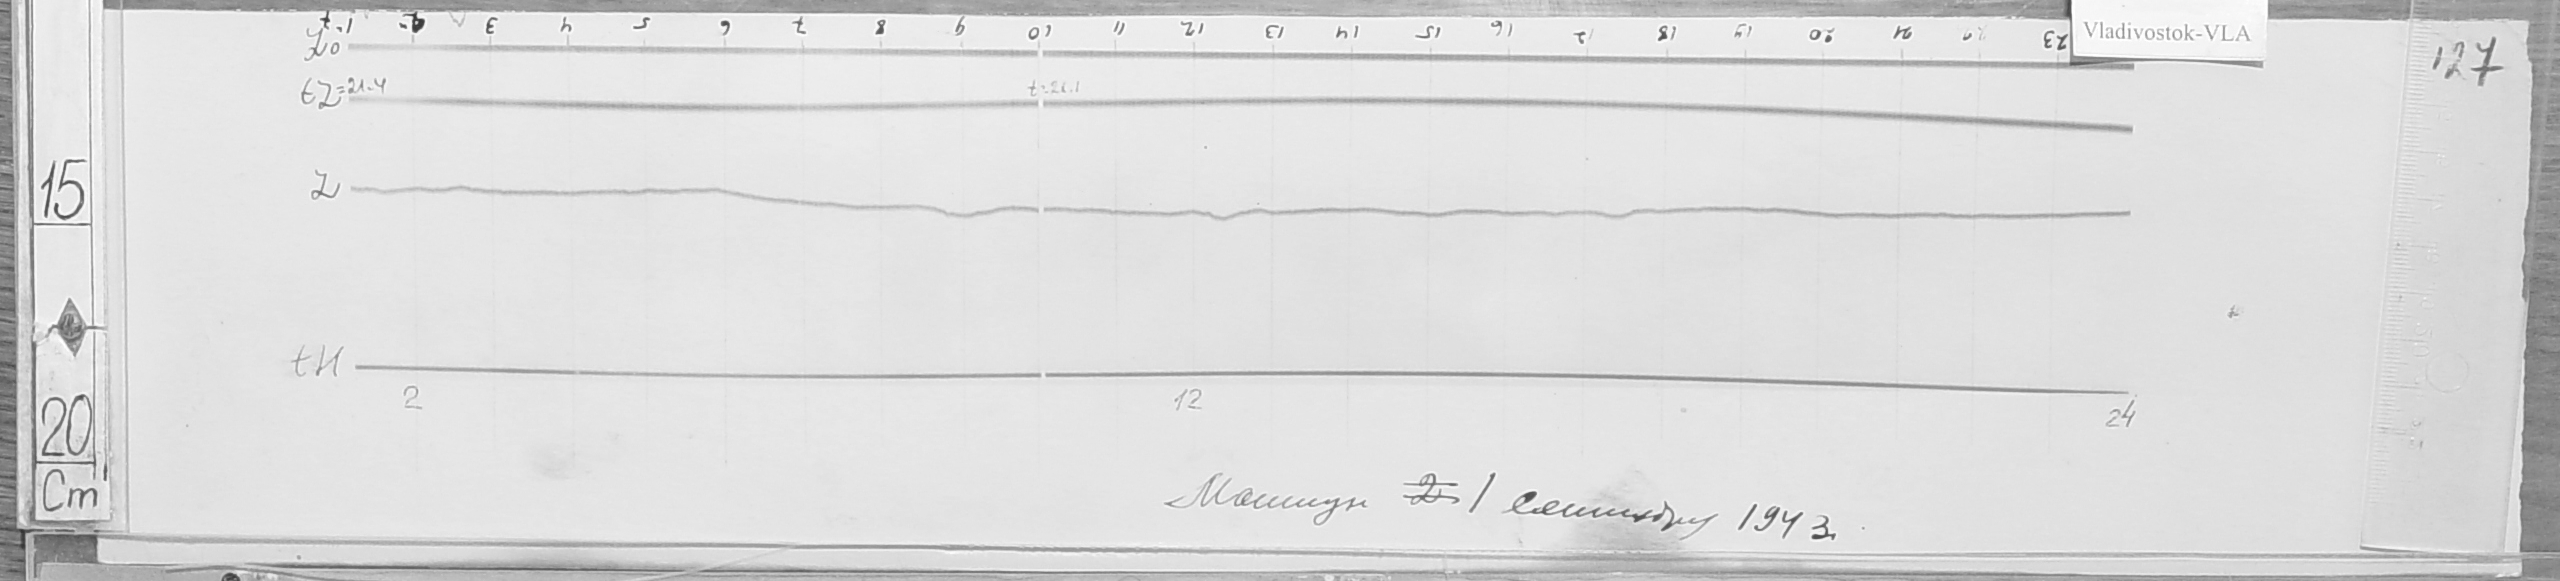 t=1 2 3 4 5 6 7 8 9 10 11 12 13 14 15 16 17 18 19 20 21 23
Vladivostok-VLA
127
Z0
tZ=21.4
t=21.1
15
Z
tH
2 12 24
20
Cm
1 1943